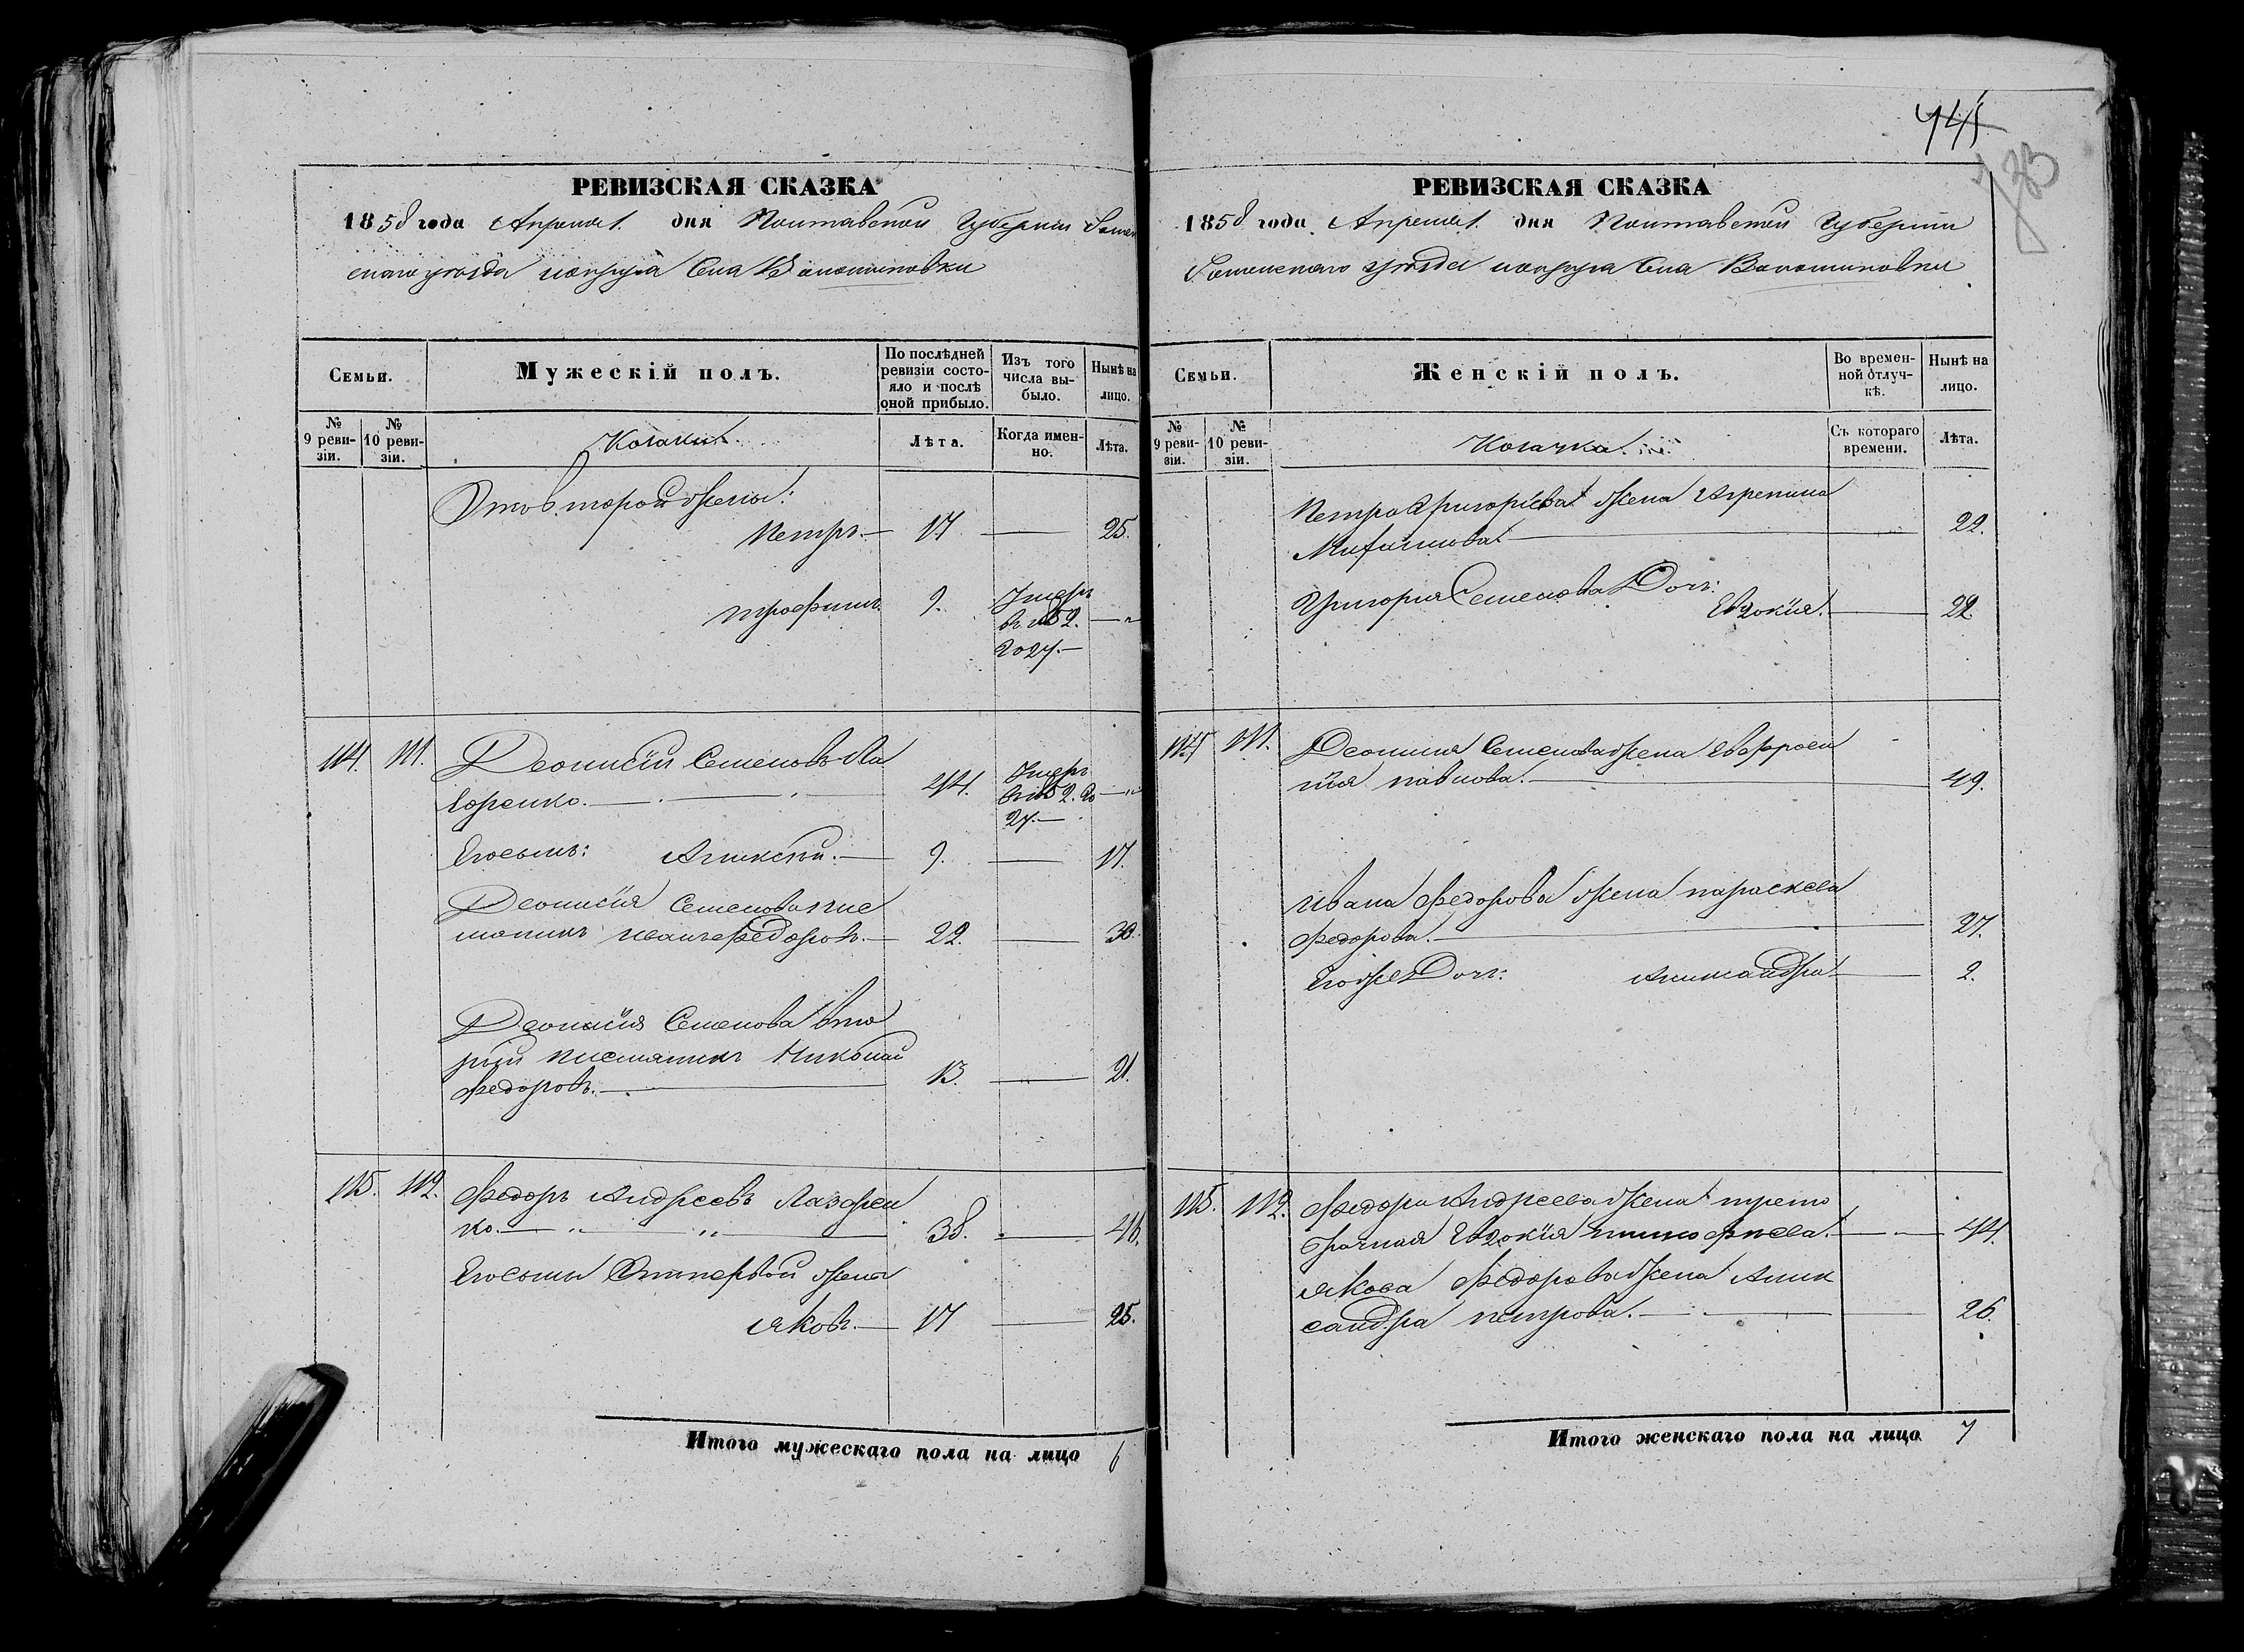 745
РЕВИЗСКАЯ СКАЗКА
1858 года Апреля 1. дня Полтавской Губернии Ромен
скаго уезда округа Села Волошиновки
Семьи.
Мужескій полъ.
По послѣдней ревизіи состояло и послѣ оной прибыло.
Изъ того числа выбыло.
Нынѣ на лицо.
№ 9 ревизіи.
№ 10 ревизіи.
Козаки.
Лѣта.
Когда именно.
Лѣта.
От второй жены:
Петръ. — 17 — 25.
Трофимъ 9. Умеръ
въ 1852. — „
году. —
114. 111. Деонисій Семеновъ Ла
44. Умеръ
зоренко. — в 1852. го — „
ду. —
Его сынъ: Алексѣй. — 9. — 17.
Деонисія Семенова пле
мяникъ Иванъ Федоровъ. — 22. — 30.
Деонисія Семенова вто
рый племяникъ Николай
Федоровъ. — 13. — 21.
115. 112. Федоръ Андреевъ Лазорен
ко. — „ — „ — 38. — 46.
Его сыны От первой жены
Яковъ. — 17 — 25.
Итого мужескаго пола на лицо 6
РЕВИЗСКАЯ СКАЗКА
1858 года Апреля 1. дня Полтавской Губерніи
Роменскаго уѣзда округа Села Волошиновки
Семьи.
Женскій полъ.
Во временной отлучкѣ.
Нынѣ на лицо.
№ 9 ревизіи.
№ 10 ревизіи.
Козачки.
Съ котораго времени.
Лѣта.
Петра Григоріева жена Агрепина
Михаилова — 22.
Григория Семенова Доч:
Евдокія. — 22
114 111. Деонисия Семенова жена Евфроси
нія Павлова. — 49.
Ивана Федорова жена Параскева
Федорова. — 27.
Его же Доч: Александра — 2.
115. 112. Федора Андреева жена трето
брачная Евдокія Тимофеева. — 44.
Якова Федорова жена Алек
сандра Петрова. — 26.
Итого женскаго пола на лицо 7